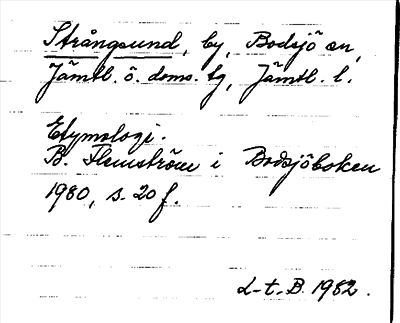 Strångsund, by, Bodsjö sn,
Jämtl. ö. doms. tg, Jämtl. l.
Etymologi.
B. Flemström i Bodsjöboken
1980, s. 20 f.
L-t-B. 1982.